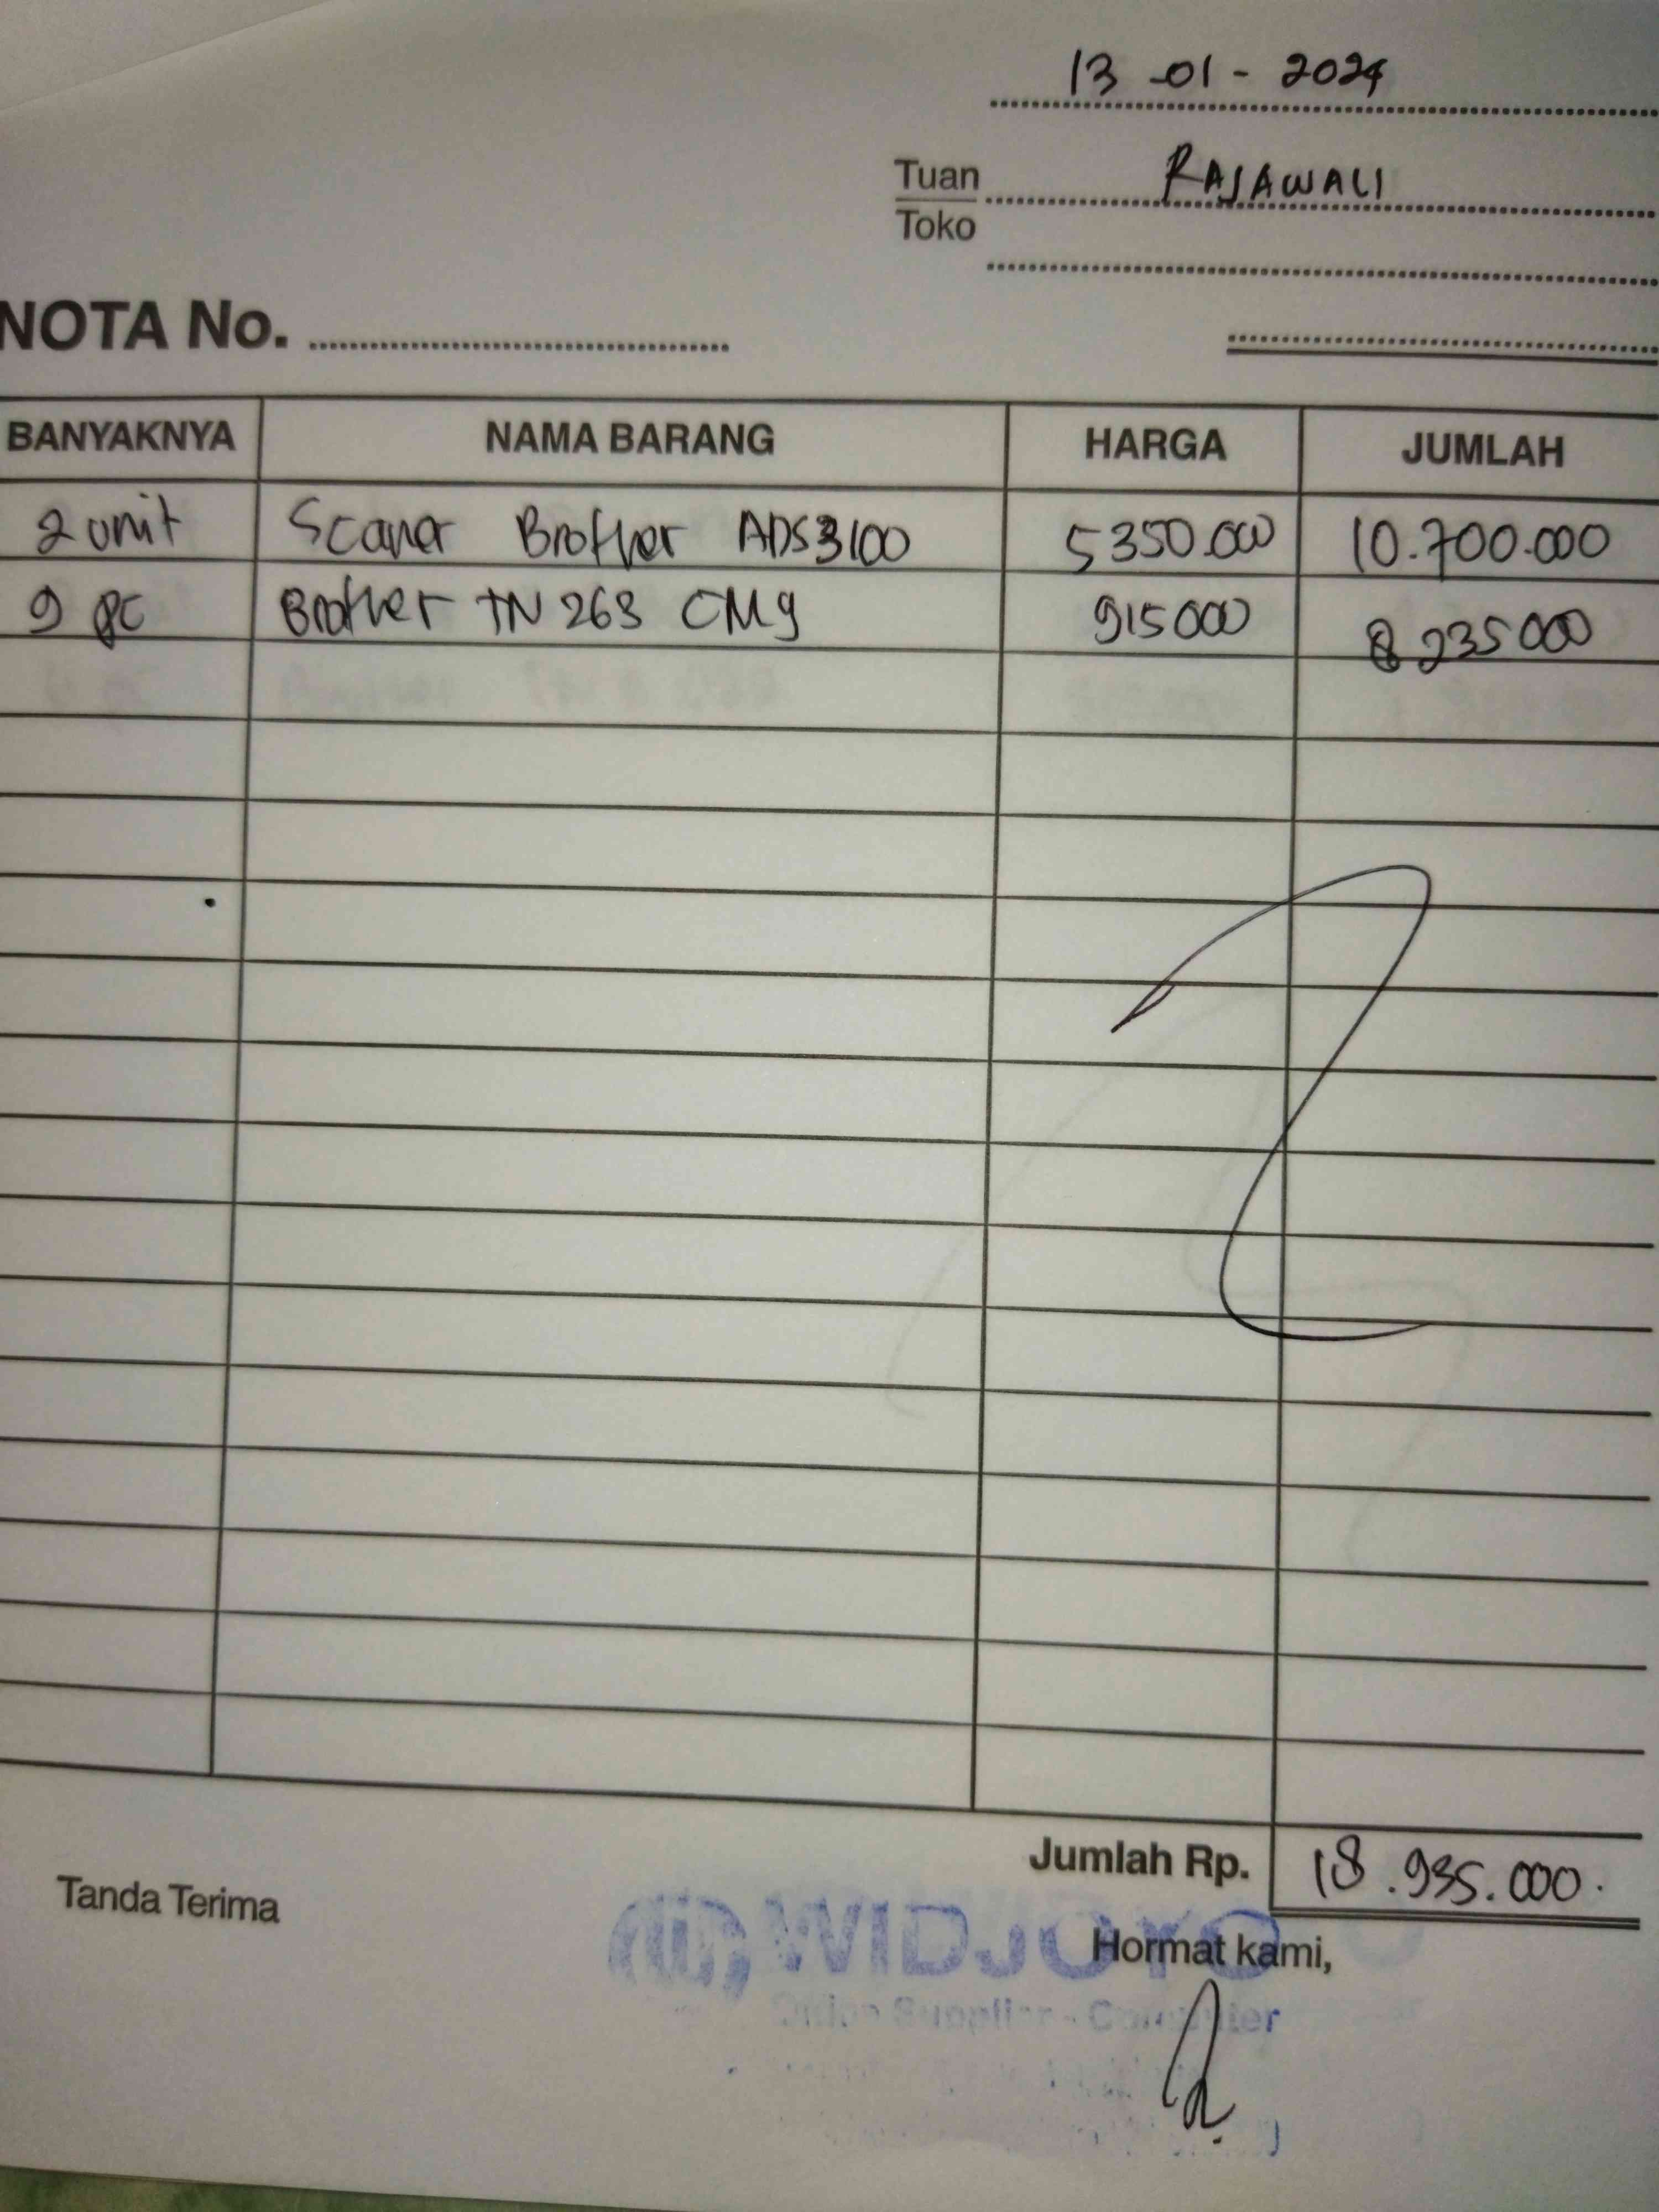 13 -01 - 2024
Tuan RAJAWALI
Toko
NOTA No.
BANYAKNYA NAMA BARANG HARGA JUMLAH
2 unit Scaner Brother ADS3100 5350.000 10.700.000
9 pc Brother TN 263 CMY 915000 8 235 000
Jumlah Rp. 18.935.000.
Tanda Terima
WIDJOYO
Hormat kami,